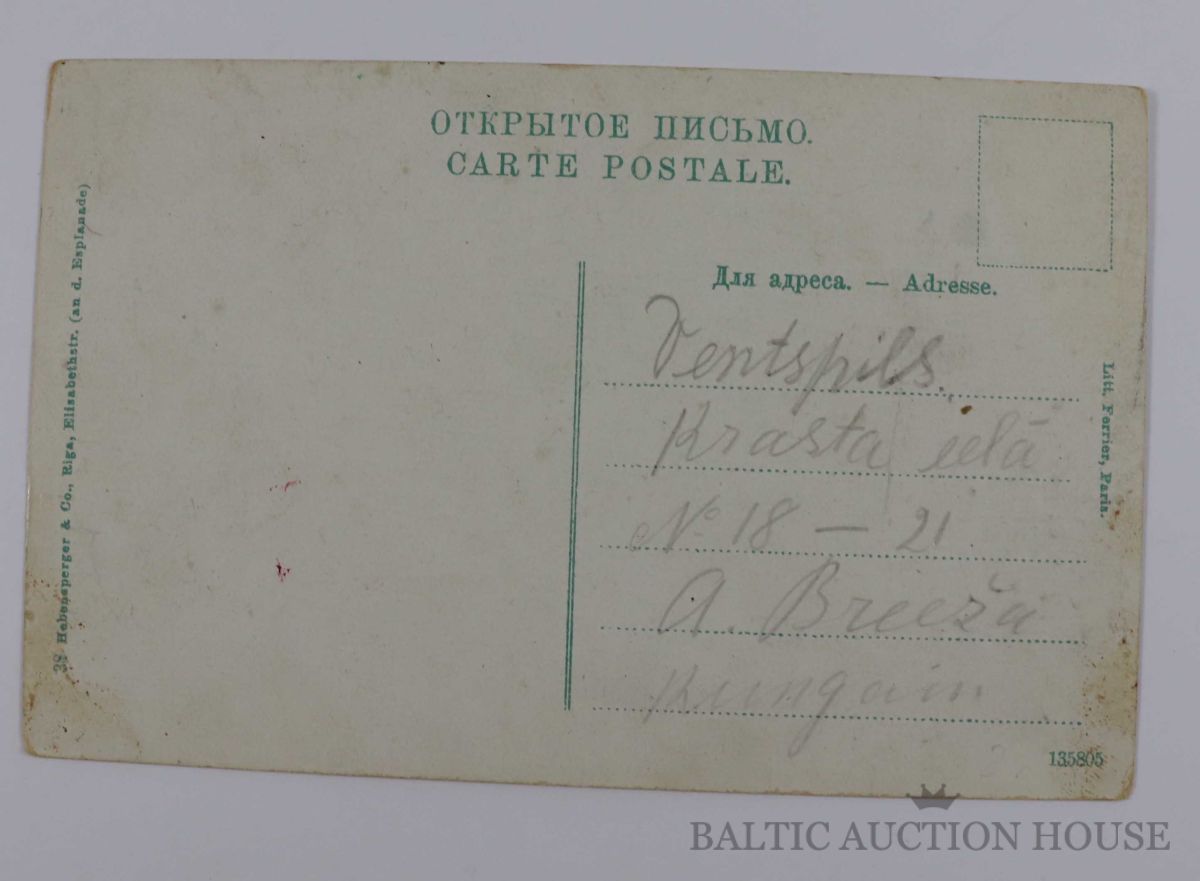 ОТКРЫТОЕ ПИСЬМО.
CARTE POSTALE.
Для адреса. — Adresse.
Ventspils.
Krasta ielā
№ 18 — 21
A. Breeža
Kungam
38 Hebensperger & Co., Riga, Elisabethstr. (an d. Esplanade)
Litt. Ferrier, Paris.
135805
BALTIC AUCTION HOUSE